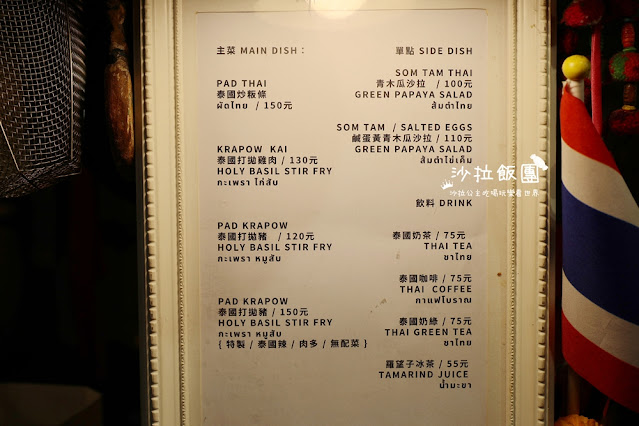 主菜 MAIN DISH :
PAD THAI
泰國炒粄條
ผัดไทย / 150元
KRAPOW KAI
泰國打拋雞肉 / 130元
HOLY BASIL STIR FRY
กะเพรา ไก่สับ
PAD KRAPOW
泰國打拋豬 / 120元
HOLY BASIL STIR FRY
กะเพรา หมูสับ
PAD KRAPOW
泰國打拋豬 / 150元
HOLY BASIL STIR FRY
กะเพรา หมูสับ
{ 特製 / 泰國辣 / 肉多 / 無配菜 }
單點 SIDE DISH
SOM TAM THAI
青木瓜沙拉 / 100元
GREEN PAPAYA SALAD
ส้มตำไทย
SOM TAM / SALTED EGGS
鹹蛋黃青木瓜沙拉 / 110元
GREEN PAPAYA SALAD
ส้มตำไข่เค็ม
飲料 DRINK
泰國奶茶 / 75元
THAI TEA
ชาไทย
泰國咖啡 / 75元
THAI COFFEE
กาแฟโบราณ
泰國奶綠 / 75元
THAI GREEN TEA
ชาไทย
羅望子冰茶 / 55元
TAMARIND JUICE
น้ำมะขา
沙拉飯團
沙拉公主吃喝玩樂看世界